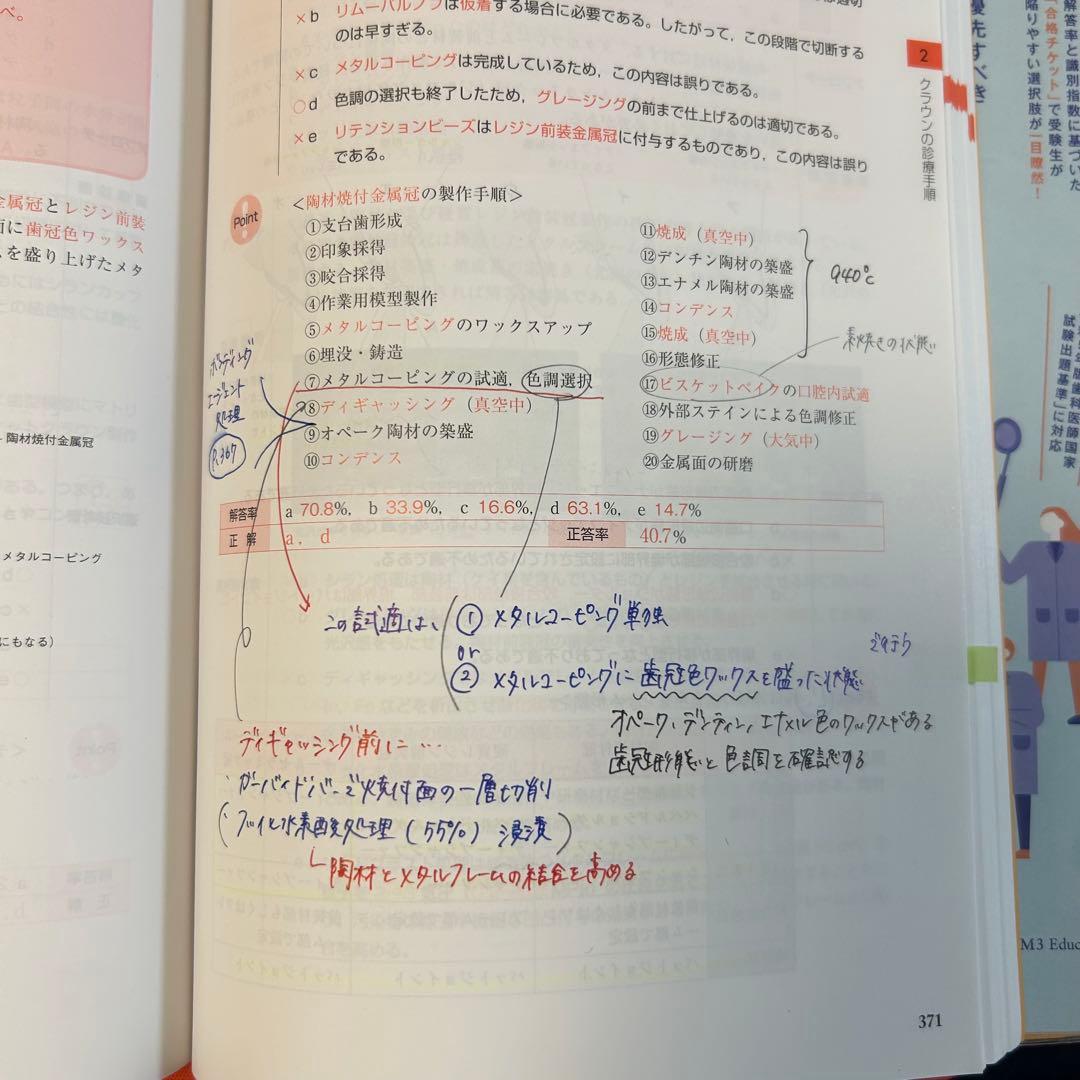 べ。
金属冠とレジン前装
面に歯冠色ワックス
を盛り上げたメタ
陶材焼付金属冠
メタルコーピング
にもなる)
×b リムーバルノブは仮着する場合に必要である。したがって，この段階で切断する
のは早すぎる。
×c メタルコーピングは完成しているため，この内容は誤りである。
○d 色調の選択も終了したため，グレージングの前まで仕上げるのは適切である。
×e リテンションビーズはレジン前装金属冠に付与するものであり，この内容は誤り
である。
Point
＜陶材焼付金属冠の製作手順＞
①支台歯形成
②印象採得
③咬合採得
④作業用模型製作
⑤メタルコーピングのワックスアップ
⑥埋没・鋳造
⑦メタルコーピングの試適，色調選択
⑧ディギャッシング（真空中）
⑨オペーク陶材の築盛
⑩コンデンス
⑪焼成（真空中）
⑫デンチン陶材の築盛
⑬エナメル陶材の築盛
⑭コンデンス
⑮焼成（真空中）
⑯形態修正
⑰ビスケットベイクの口腔内試適
⑱外部ステインによる色調修正
⑲グレージング（大気中）
⑳金属面の研磨
940℃
素焼きの状態
ボンディング
エージェント
処理
P.367
解答率 a 70.8%, b 33.9%, c 16.6%, d 63.1%, e 14.7%
正解 a, d 正答率 40.7%
この試適は、
① メタルコーピング単独
or
② メタルコーピングに歯冠色ワックスを盛った状態
オペーク、デンティン、エナメル色のワックスがある
歯冠形態と色調を確認する
ディギャッシング前に…
・カーバイドバーで焼付面の一層切削
(・フッ化水素酸処理（55%）浸漬)
陶材とメタルフレームの結合を高める
371
2
クラウンの診療手順
優先すべき
解答率と識別指数に基づいた
「合格チケット」で受験生が
陥りやすい選択肢が一目瞭然！
版歯科医師国家
試験出題基準」に対応
M3 Educ